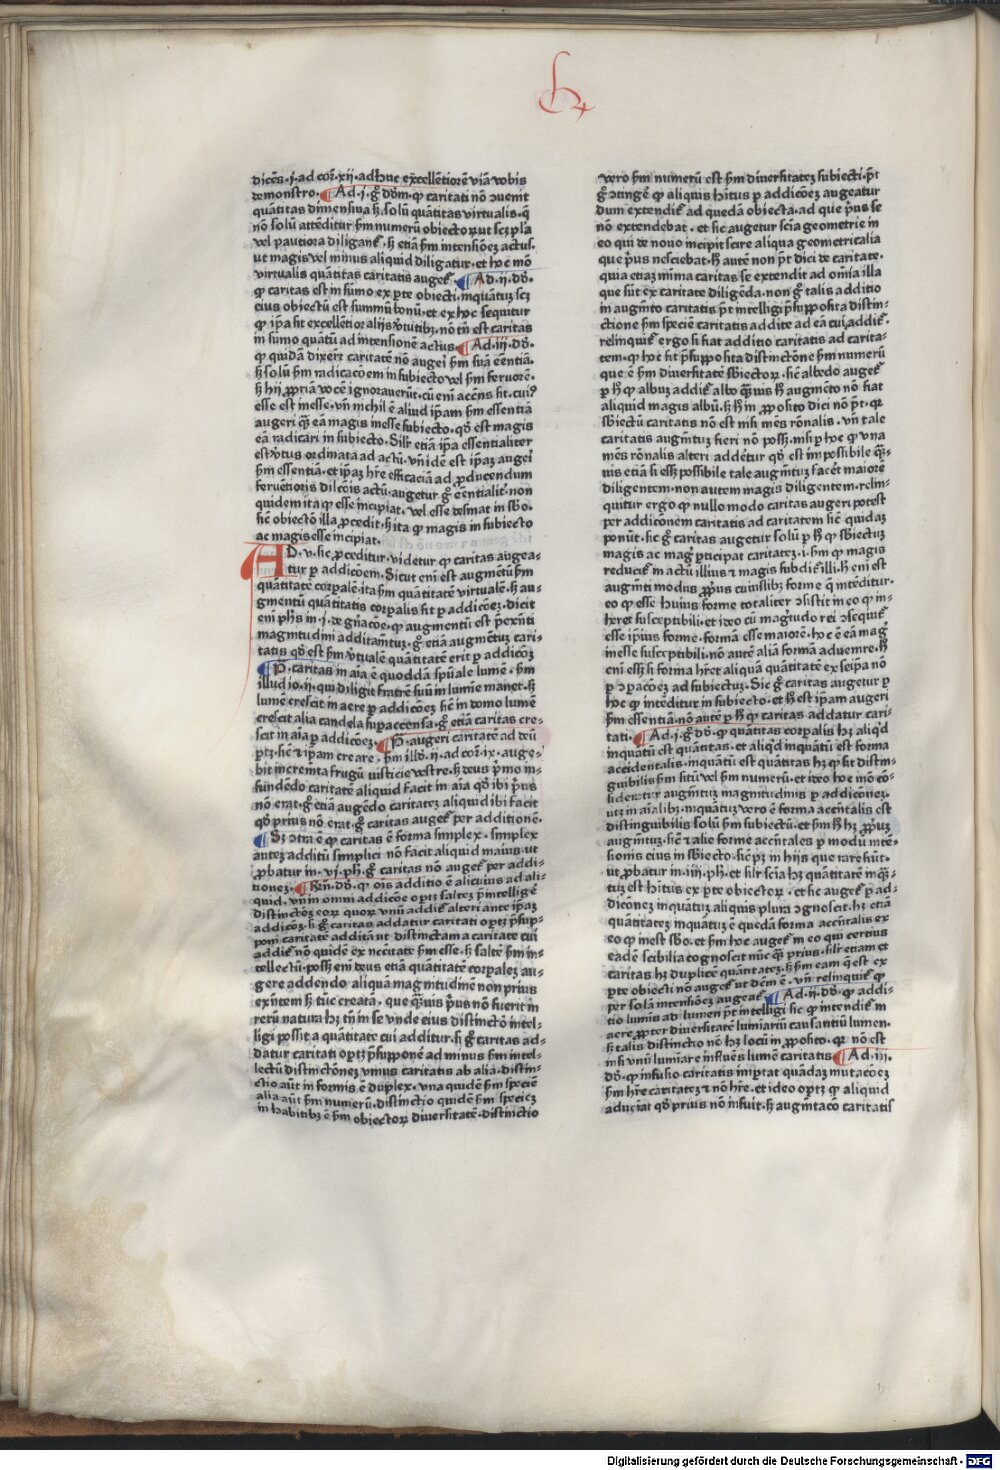 dicēs·j·ad cor̄·xij·adhuc excellētiorē viā vobis
demonstro·¶Ad·j·gͦ dōm·ꝙ caritati nō ɔuenit
quātitas dimensiua sꝫ solū quātitas virtualis·q̄
nō solū attēditur ẜm numerū obiectoꝝ ut scꝫ pla
vel pautiora diligant᷑·sꝫ etiā ẜm intensiōeꝫ actus·
ut magis vel minus aliquid diligatur·et hoc mō
virtualis quātitas caritatis auget᷑·¶Ad·ij·dō·
ꝙ caritas est in sūmo ex ꝑte obiecti·inquātuꝫ scꝫ
eius obiectū est summū bonū·et ex hoc sequitur
ꝙ ip̄a sit excellētior alijs v̓tutibꝫ·nō tn̄ est caritas
in sūmo quātū ad intensionē actus·¶Ad·iij·dō·
ꝙ quidā dixert̄ caritatē nō augeri ẜm suā eēntiā·
sꝫ solū ẜm radicacōem in subiecto vel ẜm feruorē·
sꝫ hij ꝓpriā vocē ignorauerūt·cū eni acc̄ns sit·cui᷒
esse est inesse·vn̄ nichil ē aliud ip̄am ẜm essentiā
augeri qͣꝫ eā magis inesse subiecto·qd̓ est magis
eā radicari in subiecto·Silr̄ etiā ipa essentialiter
est v̓tus ordinata ad actū·vn̄ idē est ip̄aꝫ augeri
ẜm essentiā·et ip̄aꝫ hr̄e efficaciā ad ꝓducendum
feruētioris dilcōis actū·augetur gͦ eēntialit᷑·non
quidem ita ꝙ esse incipiat·vel esse desinat in sb̓o·
sic̄ obiectō illa ꝓcedit·sꝫ ita ꝙ magis in subiecto
ac magis esse incipiat·
AD·v·sic ꝓceditur·videtur ꝙ caritas augea⸗
tur ꝑ addicōem·Sicut eni est augmētū ẜm
quātitatē corꝑalē·ita ẜm quātitatē virtualē·sꝫ au⸗
gmentū quātitatis corꝑalis fit ꝑ addicōeꝫ·dicit
eni ph̄s in·j·de gn̄acōe·ꝙ augmentū est p̄exn̄ti
magnitudini additam̄tuꝫ·gͦ etiā augmētuꝫ cari⸗
tatis qd̓ est ẜm v̓tualē quātitatē erit ꝑ addicōeꝫ
¶P̄·caritas in aīa ē quoddā spūale lumē·ẜm
illud io·ij·qui diligit fratrē suū in lumīe manet·sꝫ
lumē crescit in aere ꝑ addicōeꝫ sic̄ in domo lumē
crescit alia candela suꝑaccensa·gͦ etiā caritas cre⸗
scit in aīa ꝑ addicōeꝫ·¶P̄·augeri caritatē ad deū
ꝑtꝫ·sic̄ ⁊ ip̄am creare·ẜm illd̓·ij·ad cor̄·ix·auge⸗
bit increm̄ta frugū iusticie vestre·sꝫ deus p̓mo in⸗
fundēdo caritatē aliquid facit in aīa qd̓ ibi p̓us
nō erat·gͦ etiā augēdo caritateꝫ aliquid ibi facit
qd̓ prius nō erat·gͦ caritas auget᷑ per additionē·
¶Sꝫ ɔtra ē ꝙ caritas ē forma simplex·simplex
auteꝫ additū simplici nō facit aliquid maius·ut
ꝓbatur in·vj·ph̄·gͦ caritas nō auget᷑ per addi⸗
tioneꝫ·¶Rn̄·dō·ꝙ oīs additio ē alicuius ad ali⸗
quid·vn̄ in omni addicōe oꝑtꝫ saltē p̄intelligē
distinctōeꝫ eoꝝ quoꝝ vnū addit᷑ alteri ante ip̄aꝫ
addicōeꝫ·si gͦ caritas addatur caritati oꝑtꝫ p̄sup⸗
poni caritatē additā ut distinctam a caritate cui
addit᷑ nō quidē ex necītate ẜm esse·sꝫ saltē ẜm in⸗
tellectū·possꝫ eni deus etiā quātitatē corꝑaleꝫ au⸗
gere addendo aliquā magnitudinē non prius
exn̄tem sꝫ tūc creatā·que qͣꝫuis p̓us nō fuerit in
rerū natura hꝫ tn̄ in se vnde eius distinctō intel⸗
ligi possit a quātitate cui additur·si gͦ caritas ad⸗
datur caritati oꝑtꝫ p̄suppōnē ad minus ẜm intel⸗
lectū distinctōneꝫ vnius caritatis ab alia·distin⸗
ctio aūt in formis ē duplex·vna quidē ẜm speciē
alia aūt ẜm numerū·distinctio quidē ẜm specieꝫ
in habitibꝫ ē ẜm obiectoꝝ diuersitatē·distinctio
vero ẜm numerū est ẜm diuersitateꝫ subiecti·p̄t
gͦ ɔtingē ꝙ aliquis hītus ꝑ addicōeꝫ augeatur
dum extendit᷑ ad quedā obiecta·ad que p̓us se
nō extendebat·et sic augetur scīa geometrie in
eo qui de nouo incipit scire aliqua geometricalia
que p̓us nesciebat·sꝫ autē non p̄t dici de caritate·
quia etiaꝫ mīma caritas se extendit ad om̄ia illa
que sūt ex caritate diligēda·non gͦ talis additio
in augm̄to caritatis p̄t intelligi p̄suꝑposita distin⸗
ctione ẜm speciē caritatis addite ad eā cui addit᷑·
relinquit᷑ ergo si fiat additio caritatis ad carita⸗
tem·ꝙ hoc fit p̄supposita distinctōne ẜm numerū
que ē ẜm diuersitatē sb̄iectoꝝ·sic̄ albedo auget᷑
ꝑ hͦ ꝙ albuꝫ addit᷑ albo qͣꝫuis hͦ augmēto nō fiat
aliquid magis albū·sꝫ hͦ in ꝓposito dici nō p̄t·qꝛ
sb̄iectū caritatis nō est nisi mēs rōnalis·vn̄ tale
caritatis augm̄tuꝫ fieri nō possꝫ·nisi ꝑ hoc ꝙ vna
mēs rōnalis alteri addētur qd̓ est impossibile qͣꝫ⸗
uis etiā si essꝫ possibile tale augm̄tuꝫ facēt maiorē
diligentem·non autem magis diligentem·relin⸗
quitur ergo ꝙ nullo modo caritas augeri potest
per addicōnēm caritatis ad caritatem sic̄ quidaꝫ
ponūt·sic gͦ caritas augetur solū ꝑ hͦ ꝙ sb̄iectuꝫ
magis ac magꝭ ꝑticipat caritateꝫ·i·ẜm ꝙ magis
reducit᷑ in actū illius ⁊ magis subdit᷑ illi·hͦ eni est
augm̄ti modus ꝓpus cuiuslibꝫ forme q̄ intēditur·
eo ꝙ esse huius forme totaliter ɔsistit in eo ꝙ in⸗
heret susceptibili·et ideo cū magͥtudo rei ɔsequit᷑
esse ip̄ius forme·formā esse maiorē·hoc ē eā magꝭ
inesse susceptibili·nō autē aliā formā aduenire·hͦ
eni essꝫ si forma hr̄et aliquā quātitatē ex seip̄a nō
ꝑ ɔꝑacōeꝫ ad subiectuꝫ·Sic gͦ caritas augetur ꝑ
hoc ꝙ intēditur in subiecto·et hͦ est ip̄am augeri
ẜm essentiā·nō autē ꝑ hͦ ꝙ caritas addatur cari⸗
tati·¶Ad·j·gͦ dō·ꝙ quātitas corꝑalis hꝫ aliqͥd
inquātū est quātitas·et aliqͥd inquātū est forma
accidentalis·inquātū est quātitas hꝫ ꝙ sit distin⸗
guibilis ẜm sitū vel ẜm numerū·et ideo hoc mō cō⸗
sideratur augm̄tuꝫ magnitudinis ꝑ addicōneꝫ·
utꝫ in aīalibꝫ·inquātuꝫ vero ē forma accn̄talis est
distinguibilis solū ẜm subiectū·et ẜm hͦ hꝫ ꝓpuꝫ
augm̄tuꝫ·sic̄ ⁊ alie forme accn̄tales ꝑ modū intē⸗
sionis eius in sb̄iecto·sic̄ pꝫ in hijs que rare fiūt·
ut ꝓbatur in·iiij·ph̄·et silr̄ scīa hꝫ quātitatē inqͣꝫ⸗
tuꝫ est hītus ex ꝑte obiectoꝝ·et sic auget᷑ ꝑ ad⸗
dicōneꝫ inquātuꝫ aliquis plura ɔgnoscit·hꝫ etiā
quātitateꝫ inquātuꝫ ē quedā forma accn̄talis ex
eo ꝙ inest sb̓o·et ẜm hoc auget᷑ in eo qui certius
eadē scibilia cognoscit nūc qͣꝫ prius·silr̄ etiam et
caritas hꝫ duplicē quātitateꝫ·sꝫ ẜm eam q̄ est ex
ꝑte obiecti nō auget᷑ ut dcm̄ ē·vn̄ relinquit᷑ ꝙ
per solā intensiōeꝫ augeat᷑·¶Ad·ij·dō·ꝙ addi⸗
tio lumīs ad lumen p̄t intelligi sic ꝙ intendit᷑ in
aere ꝓpter diuersitatē lumiariū causantiū lumen·
sꝫ talis distinctio nō hꝫ locū in ꝓposito·qꝛ nō est
nisi vnū lumiare influēs lumē caritatis·¶Ad·iij·
dō·ꝙ infusio caritatis īmp̄tat quādaꝫ mutacōeꝫ
ẜm hr̄e caritateꝫ ⁊ nō hr̄e·et ideo oꝑtꝫ ꝙ aliquid
adueniat qd̓ prius nō infuit·sꝫ augm̄tacō caritatis
Digitalisierung gefördert durch die Deutsche Forschungsgemeinschaft - DFG